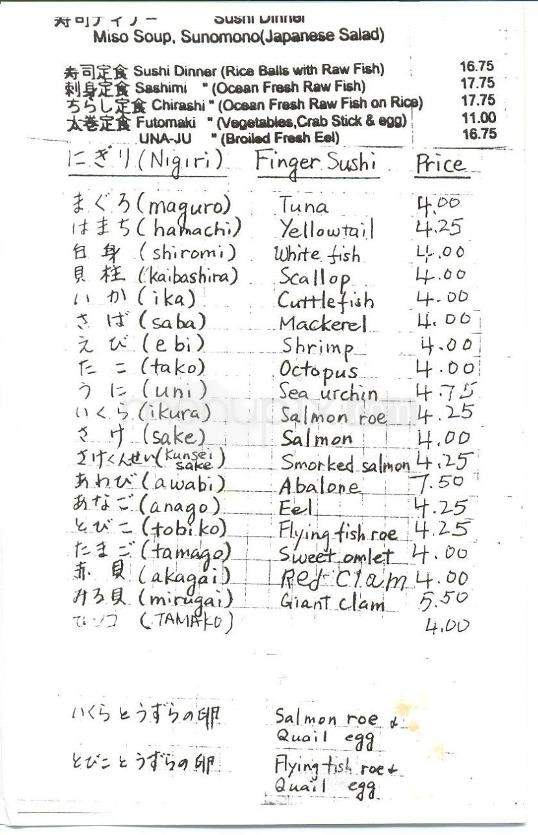 寿司ディナー Sushi Dinner
Miso Soup, Sunomono(Japanese Salad)
寿司定食 Sushi Dinner (Rice Balls with Raw Fish) 16.75
刺身定食 Sashimi " (Ocean Fresh Raw Fish) 17.75
ちらし定食 Chirashi " (Ocean Fresh Raw Fish on Rice) 17.75
太巻定食 Futomaki " (Vegetables,Crab Stick & egg) 11.00
UNA-JU " (Broiled Fresh Eel) 16.75
にぎり(Nigiri) Finger Sushi Price
まぐろ(maguro) Tuna 4.00
はまち(hamachi) Yellowtail 4.25
白身(shiromi) White fish 4.00
貝柱(kaibashira) Scallop 4.00
いか(ika) Cuttlefish 4.00
さば(saba) Mackerel 4.00
えび(ebi) Shrimp 4.00
たこ(tako) Octopus 4.00
うに(uni) Sea urchin 4.75
いくら(ikura) Salmon roe 4.25
さけ(sake) Salmon 4.00
さけくんせい(Kunsei sake) Smorked salmon 4.25
あわび(awabi) Abalone 7.50
あなご(anago) Eel 4.25
とびこ(tobiko) Flying fish roe 4.25
たまご(tamago) Sweet omlet 4.00
赤貝(akagai) Red Clam 4.00
みる貝(mirugai) Giant clam 5.50
(TAMAKO) 4.00
いくらとうずらの卵 Salmon roe &
Quail egg
とびことうずらの卵 Flying fish roe &
Quail egg